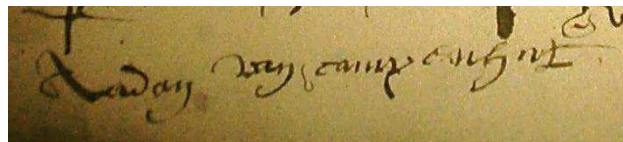 Adan van campenhout